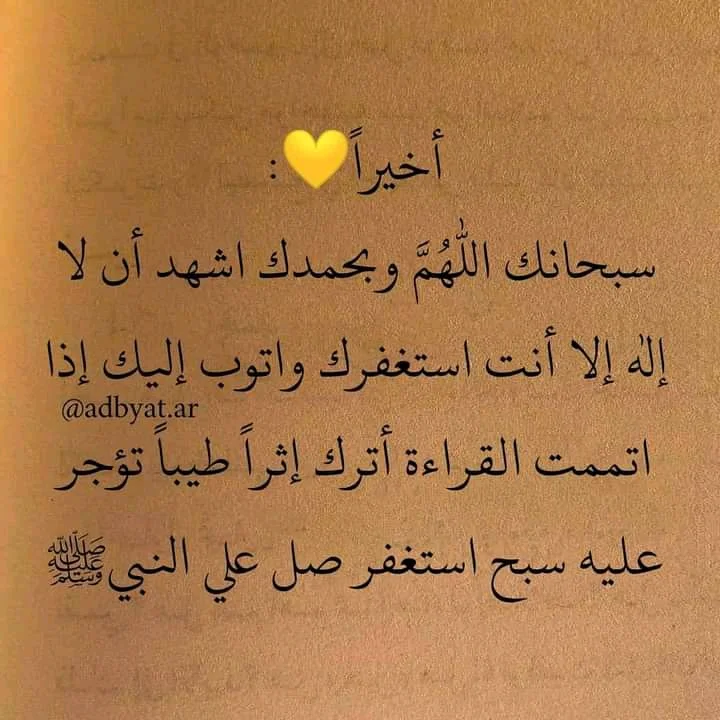 أخيراً💛:
سبحانك اللّٰهُمَّ وبحمدك اشهد أن لا
إلٰه إلا أنت استغفرك واتوب إليك إذا
@adbyat.ar
اتممت القراءة أترك إثراً طيباً تؤجر
عليه سبح استغفر صل علي النبي ﷺ